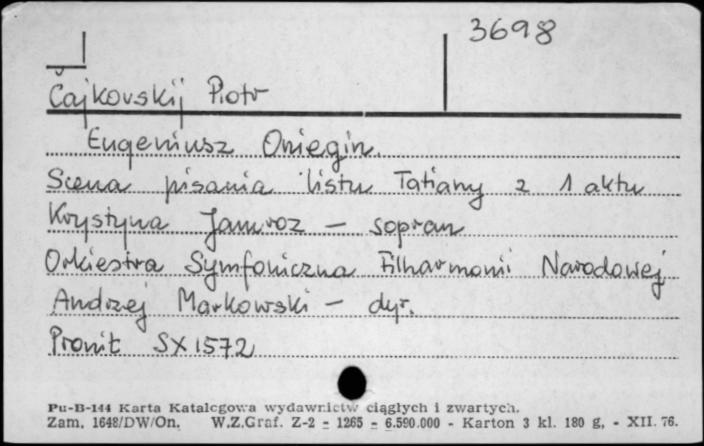 3698
Čajkovskij Piotr
Eugeniusz Oniegin.
Scena pisania listu Tatiany z 1 aktu
Krystyna Jamroz – sopran
Orkiestra Symfoniczna Filharmonii Narodowej
Andrzej Markowski – dyr.
Pronit SX1572
Pu-B-144 Karta Katalogowa wydawnictw ciągłych i zwartych.
Zam. 1648/DW/On. W.Z.Graf. Z-2 - 1265 - 6.590.000 - Karton 3 kl. 180 g, - XII. 76.